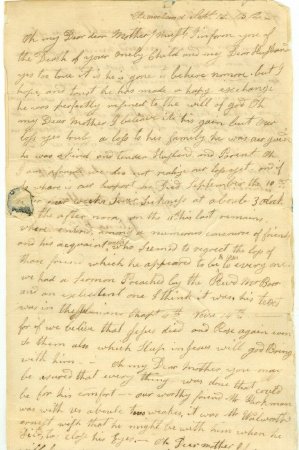 Oh my Dear dear Mother, must I inform you of
the Death of your Only Child and my Dear Husband
yes too true it is he is gone I believe no more but I
hope, and trust he has made a happy exchange
he was perfectly resigned to the will of god Oh
my Dear Mother I believe it his gain but our
loss yes truly a loss to his family he was
he was a kind and tender Husband and Parent Oh
I am we do not realize our loss yet, and if
there is our support he Died September the 10th
four weeks Sickness at aboute 3 oClock
the after noon, on the 11th his last remains
where among a numerous concourse of friends
and his acquaint who seemed to regret the loss of
those which he appeared to be to every one
we had a sermon Preached by the Revd Mr
and an excellent one I think it was his text
was in the Chapt 4th Verse 14th
for if we believe that Jesus died and Rose again even so
do them also which Sleep in Jesus will god Bring
with him — Oh my Dear Mother you may
be asured that every thing was done that could
be for his comfort — our worthy friend Mr
was with us aboute weakes, it was Mr
ernest wish that he might be with him when he
to close his Eyes — Oh Dear mother